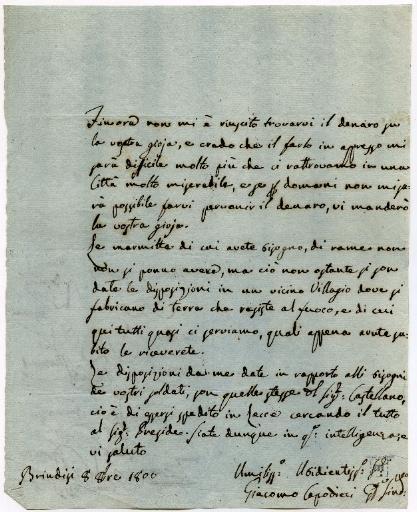 Finora non mi è riuscito trovarvi il denaro su
la vostra gioja, e credo che il farlo in appresso mi
sarà dificile molto più che ci rattrovamo in una
Città molto miserabile, e se p domani non mi sa
rà possibile farvi pervenir il denaro, vi manderò
la vostra gioja.
Le marmitte di cui avete bisogno, di rame non
non si ponno avere, ma ciò non ostante si son
date le disposizioni in un vicino Villagio dove si
fabricano di terra che resiste al fuoco, e di cui
qui tutti quasi ci serviamo, quali appena avute su
bito le riceverete.
Le disposizioni da me date in rapporto alli bisogni
de vostri soldati, son quelle stesse del sig.r Castellano,
cioè di essersi spedito in Lecce cercando il tutto
al sig.r Preside. siate dunque in q.ta intelligenza, e
vi saluto
Brindisi 8 Bre 1800
Umiliss.o Ubidientiss.o
Giacomo Capodieci Sind.